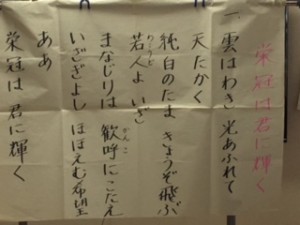 栄冠は君に輝く
一 雲はわき 光あふれて
天たかく
純白のたま きょうぞ飛ぶ
若人よ いざ
わこうど
まなじりは 歓呼にこたえ
かんこ
いさぎよし ほほえむ希望
ああ
栄冠は 君に輝く